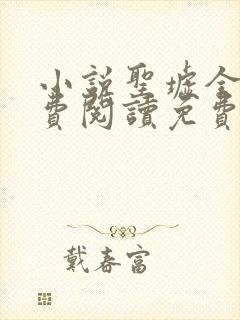 小說聖墟全
費閱讀免費
戴春富